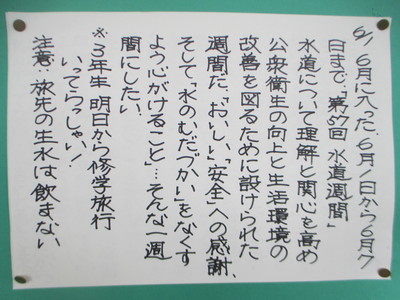 6/1 6月に入った。6月1日から6月7
日まで、「第57回 水道週間」
水道について理解と関心を高め
公衆衛生の向上と生活環境の
改善を図るために設けられた
週間だ。「おいしい」「安全」への感謝、
そして、「水のむだづかい」をなくす
よう心がけること…そんな一週
間にしたい。
※3年生 明日から修学旅行
いってらっしゃい!
注意:旅先の生水は飲まない